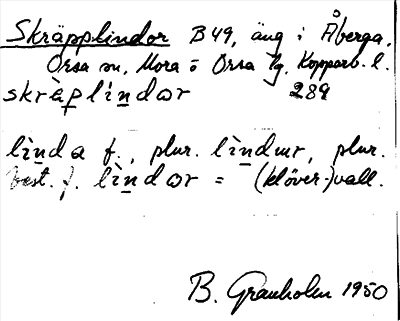 Skräpplindor B49, äng i Åberga,
Orsa sn, Mora o Orsa tg. Kopparb. l.
skrä̀plìndɑr 289
lìnda f., plur. lìndur, plur.
best. f. lìndɑr = (klöver-)vall.
B. Granholm 1950